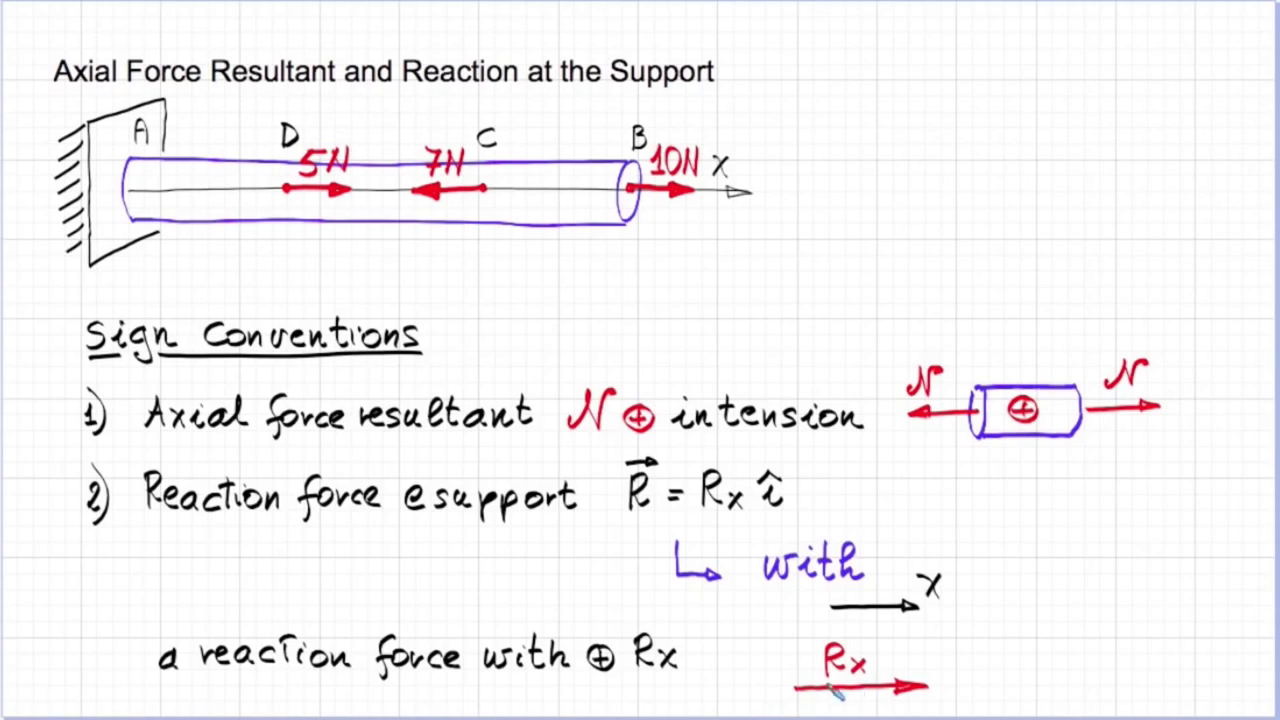 Axial Force Resultant and Reaction at the Support
A D C B
5N 7N 10N x
Sign Conventions
1) Axial force resultant N ⊕ in tension N ⊕ N
2) Reaction force @ support R⃗ = Rx î
↳ with x
a reaction force with ⊕ Rx Rx